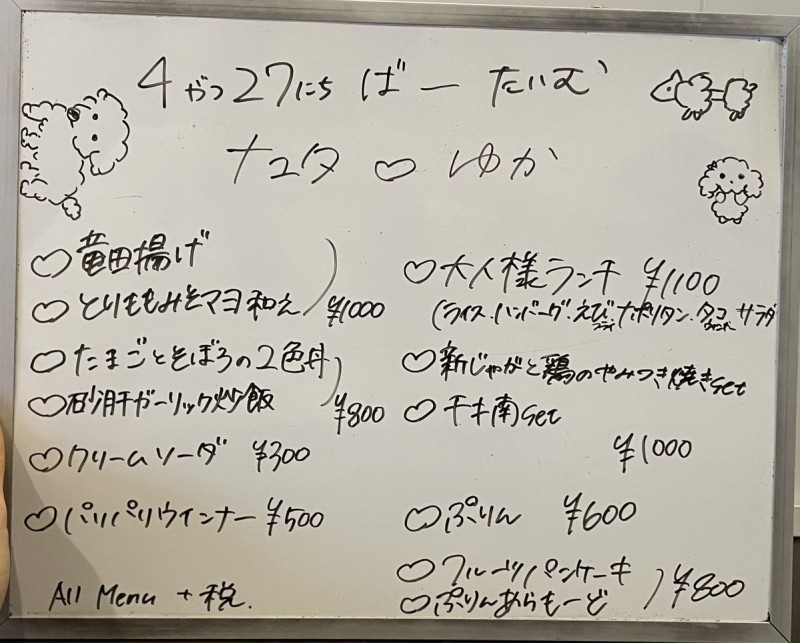 4がつ27にち ばーたいむ
ナユタ ♡ ゆか
♡竜田揚げ
♡とりももみそマヨ和え ¥1000
♡たまごとそぼろの2色丼
♡砂肝ガーリック炒飯 ¥800
♡クリームソーダ ¥300
♡パリパリウインナー ¥500
All Menu + 税.
♡大人様ランチ ¥1100
(ライス.ハンバーグ.えびフライ.ナポリタン.タコウインナー サラダ
♡新じゃがと鶏のやみつき焼きset
♡チキ南set
¥1000
♡ぷりん ¥600
♡フルーツパンケーキ
♡ぷりんあらもーど ¥800